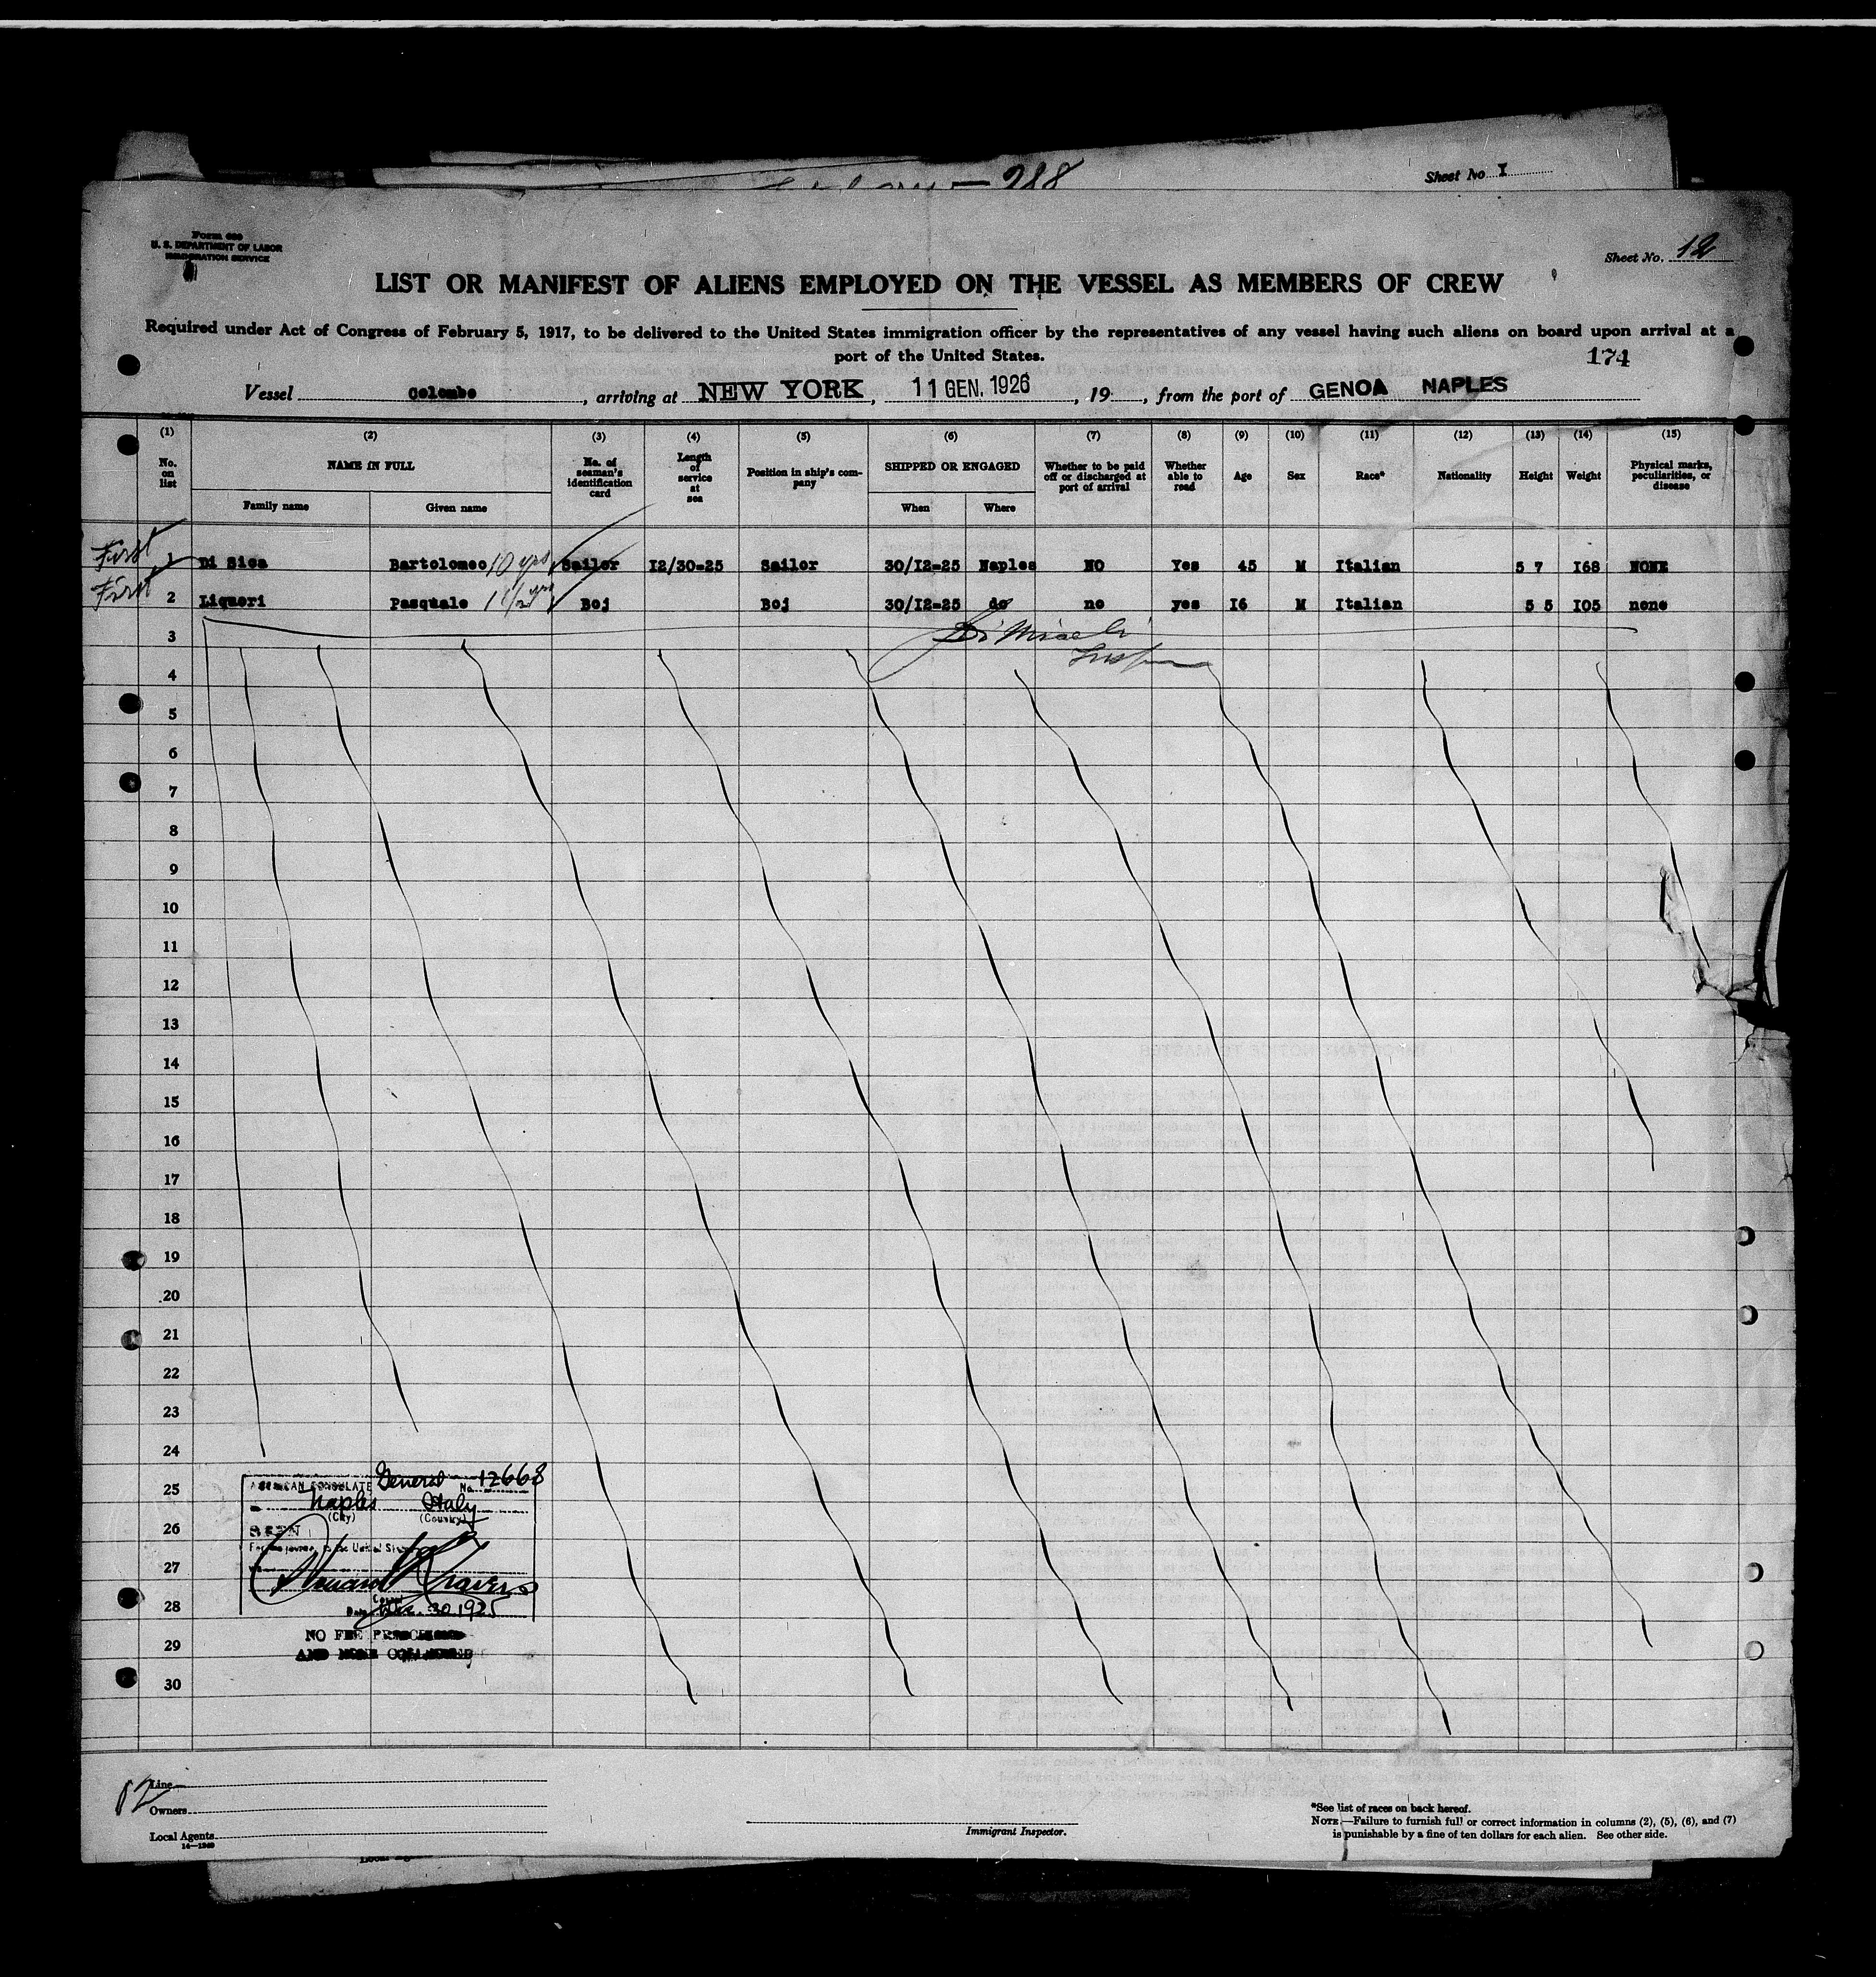 288
Sheet No I
Form 689
U. S. DEPARTMENT OF LABOR
IMMIGRATION SERVICE
Sheet No. 12
LIST OR MANIFEST OF ALIENS EMPLOYED ON THE VESSEL AS MEMBERS OF CREW
Required under Act of Congress of February 5, 1917, to be delivered to the United States immigration officer by the representatives of any vessel having such aliens on board upon arrival at a
port of the United States.
174
Vessel Colombo, arriving at NEW YORK, 11 GEN. 1926, 19, from the port of GENOA NAPLES
(1) (2) (3) (4) (5) (6) (7) (8) (9) (10) (11) (12) (13) (14) (15)
No. on list NAME IN FULL No. of seaman's identification card Length of service at sea Position in ship's company SHIPPED OR ENGAGED Whether to be paid off or discharged at port of arrival Whether able to read Age Sex Race* Nationality Height Weight Physical marks, peculiarities, or disease
Family name Given name When Where
First 1 Di Sica Bartolomeo 10 yrs Sailor 12/30-25 Sailor 30/12-25 Naples NO Yes 45 M Italian 5 7 I68 NONE
First 2 Liquori Pasquale 1 1/2 yrs Boj Boj 30/12-25 do no yes I6 M Italian 5 5 I05 none
3
4
5
6
7
8
9
10
11
12
13
14
15
16
17
18
19
20
21
22
23
24
25
26
27
28
29
30
AMERICAN CONSULATE General No. 12668
Naples Italy
(City) (Country)
SEEN
For the journey to the United States
Consul
Date Dec. 30 1925
NO FEE PRESCRIBED
AND NONE COLLECTED
12
Line
Owners
Local Agents
14—1240
Immigrant Inspector.
*See list of races on back hereof.
NOTE.—Failure to furnish full or correct information in columns (2), (5), (6), and (7)
is punishable by a fine of ten dollars for each alien. See other side.